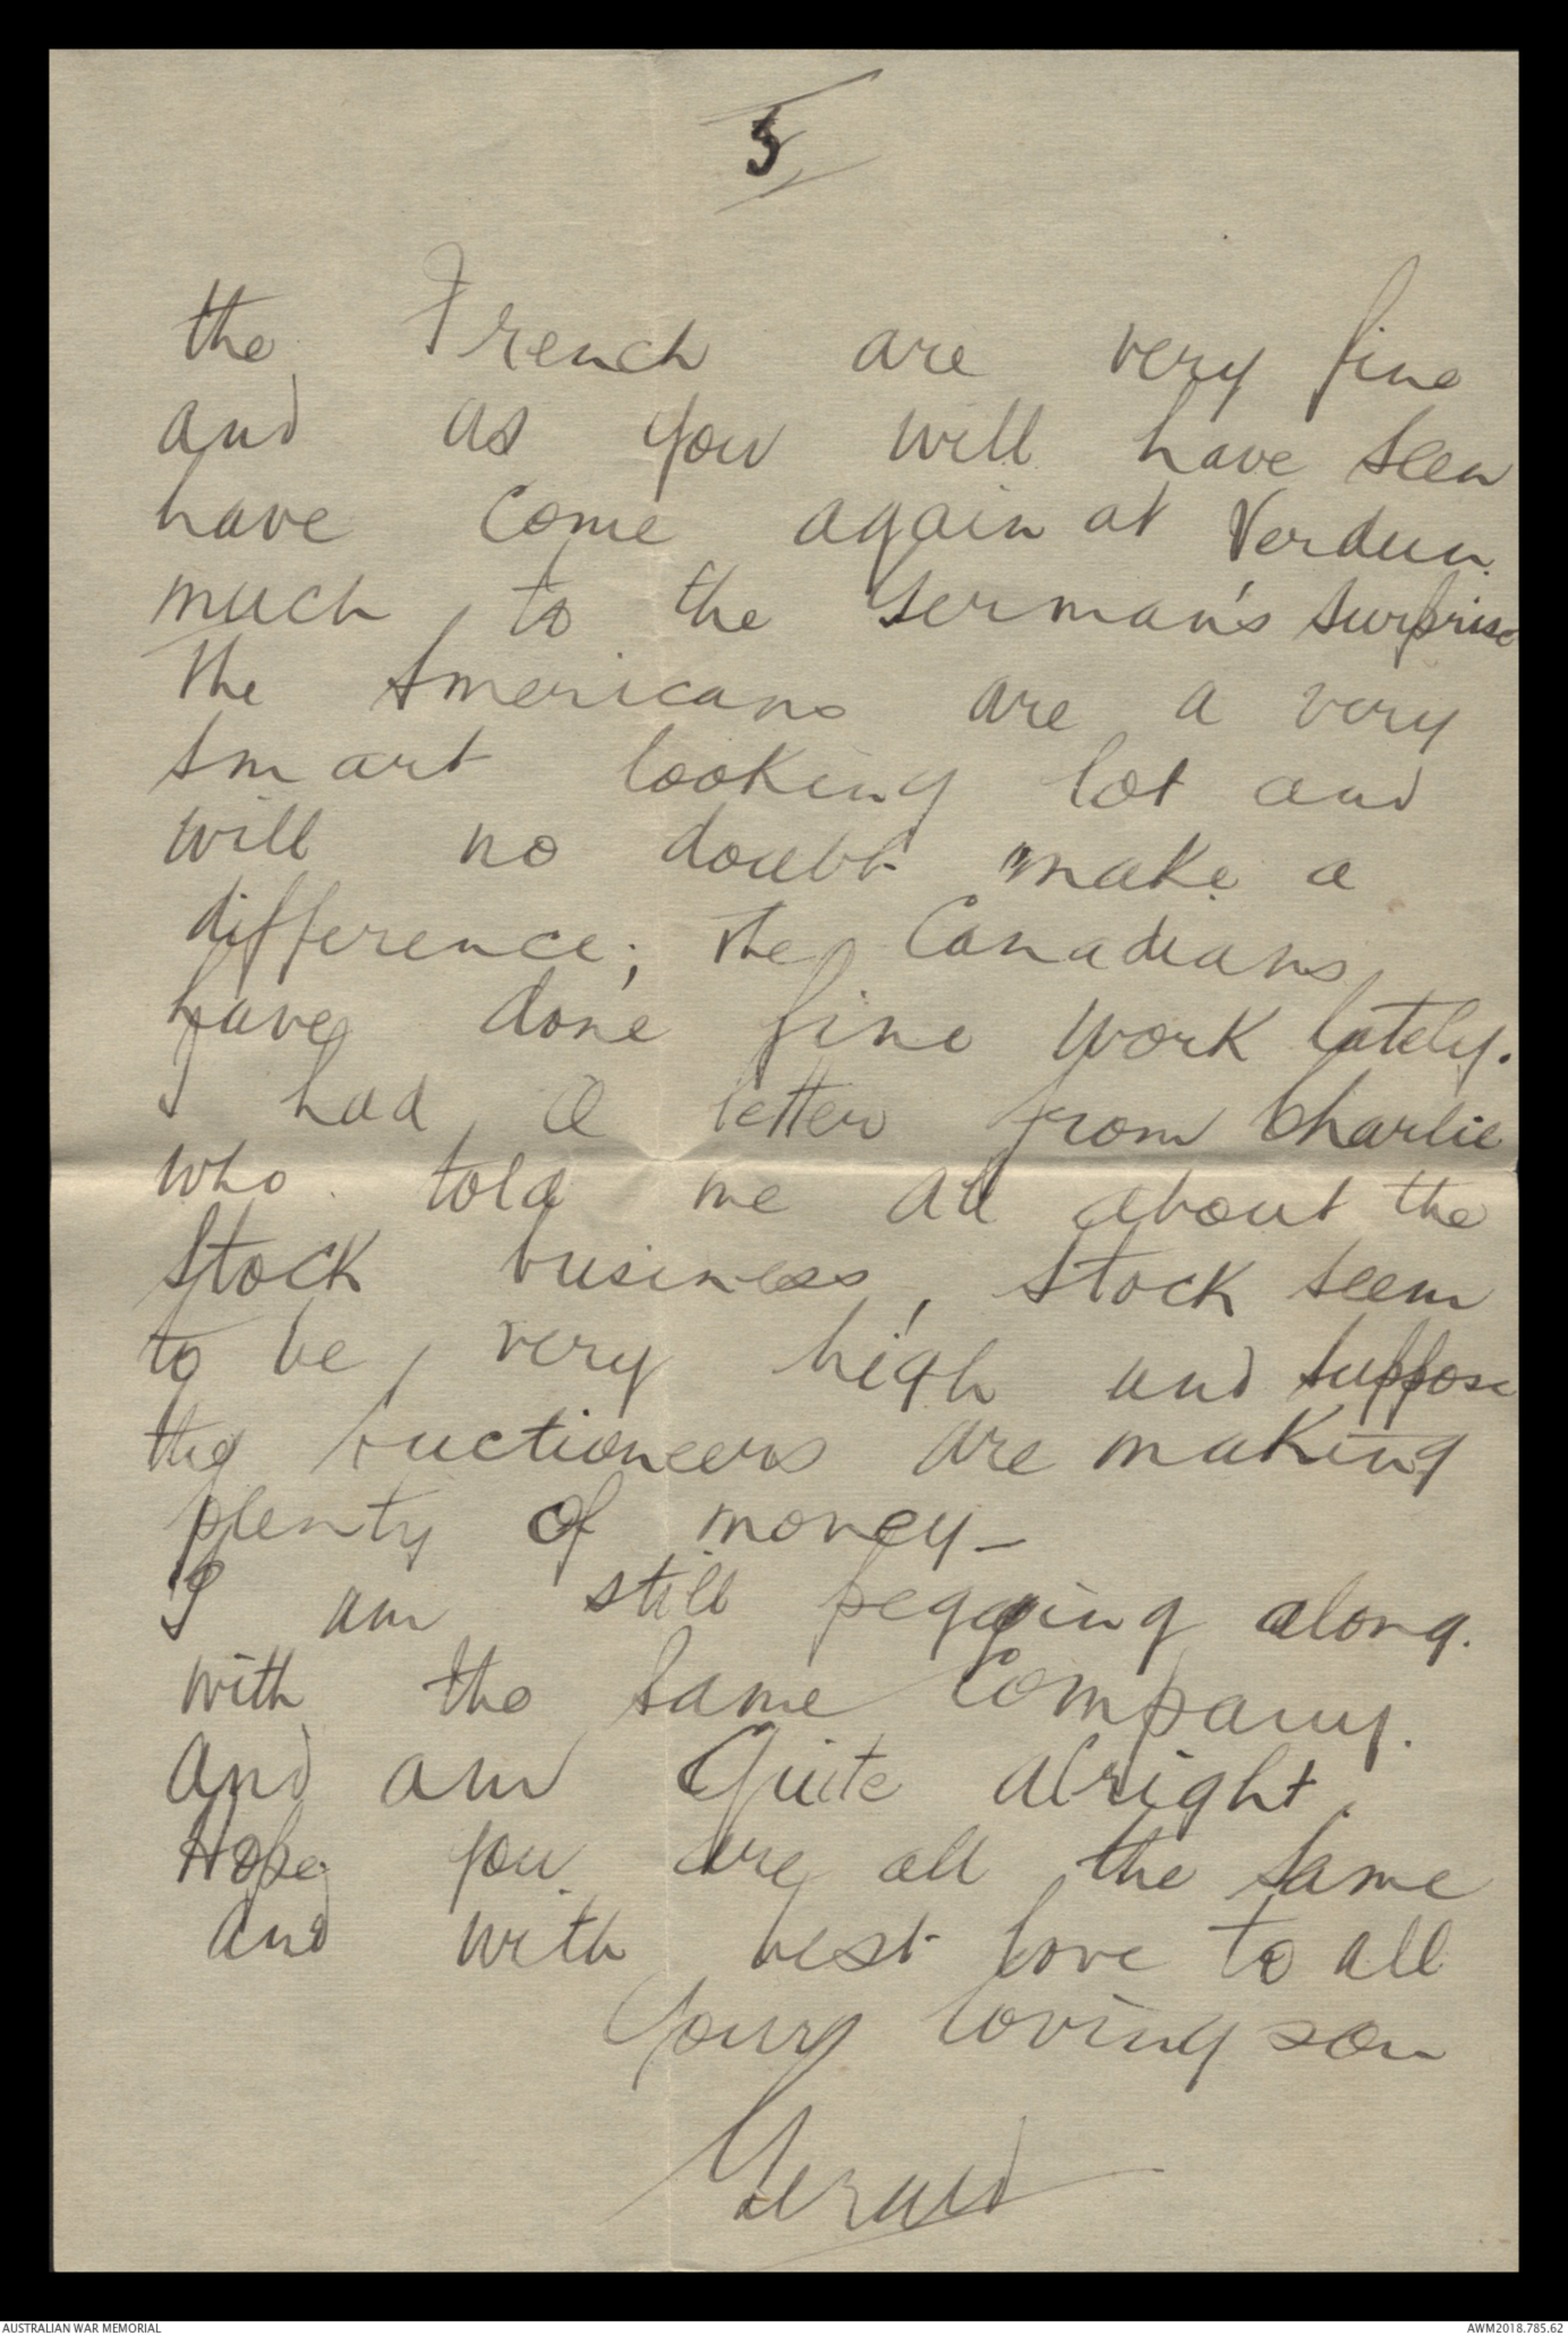 5
the French are very fine
and as you will have seen
have come again at Verdun
much to the German's surprise
The Americans are a very
smart looking lot and
will no doubt make a
difference; The Canadians
have done fine work lately.
I had a letter from Charlie
who told me all about the
stock business, stock seem
to be very high and suppose
the auctioneers are making
plenty of money -
I am still pegging along.
with the same Company.
and am Quite alright.
Hope you are all the same
and with best love to all
Your loving son
Gerald
AUSTRALIAN WAR MEMORIAL
AWM2018.785.62